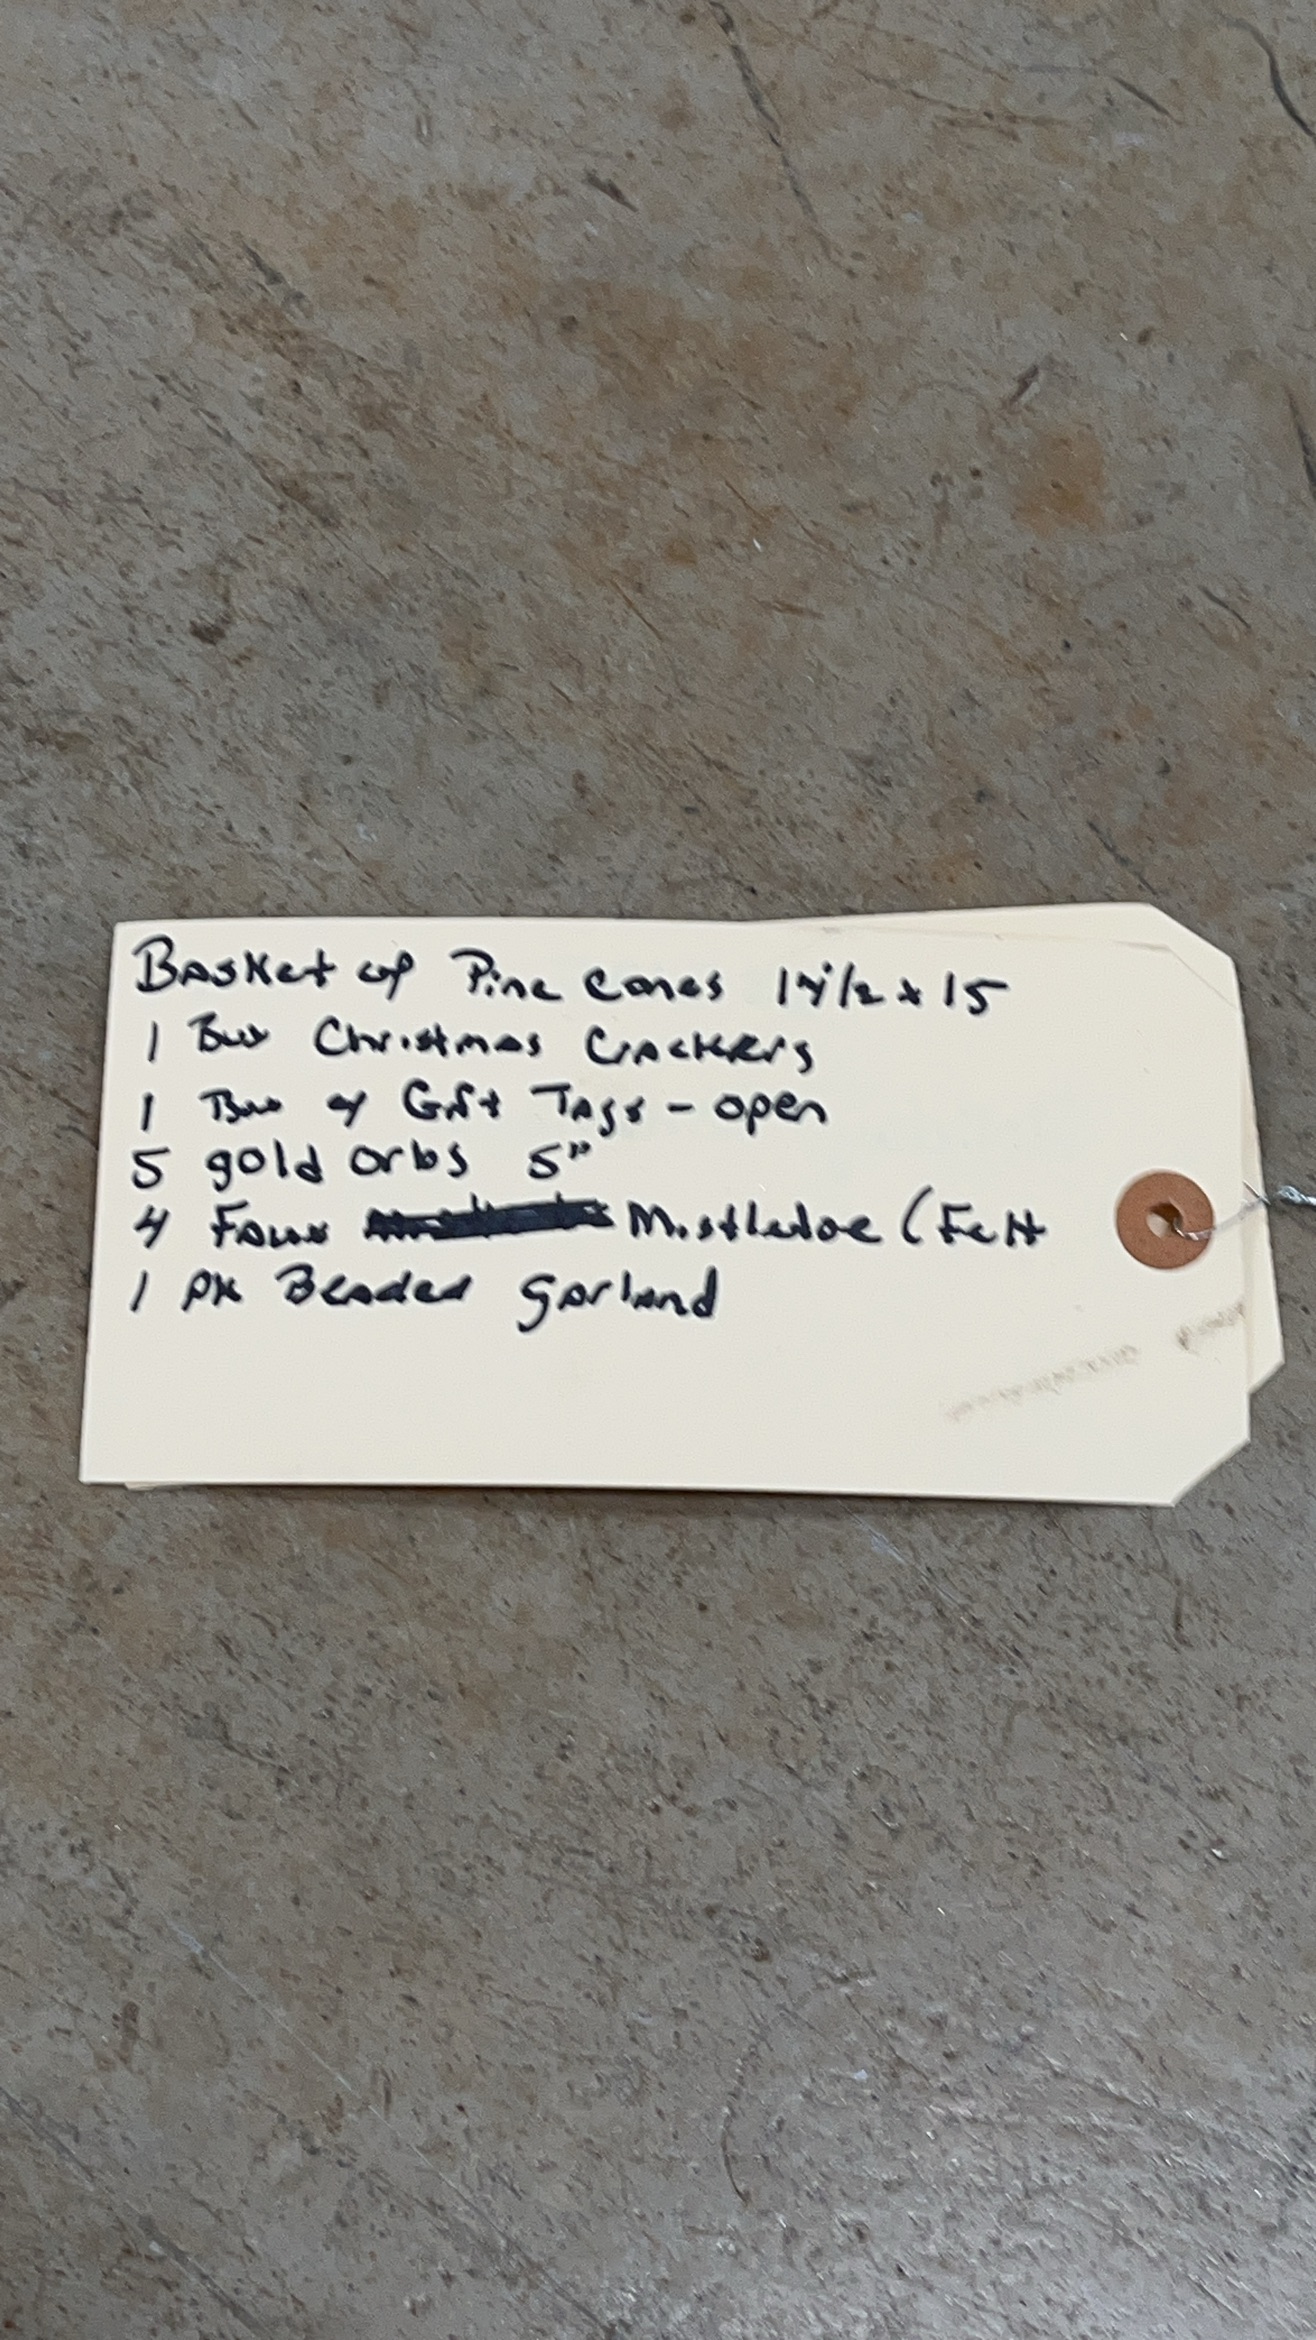 Basket of Pine Cones 14 1/2 x 15
1 Box Christmas Crackers
1 Box of Gift Tags - open
5 gold orbs 5"
4 Faux Mistletoe (Felt
1 PK Beaded garland